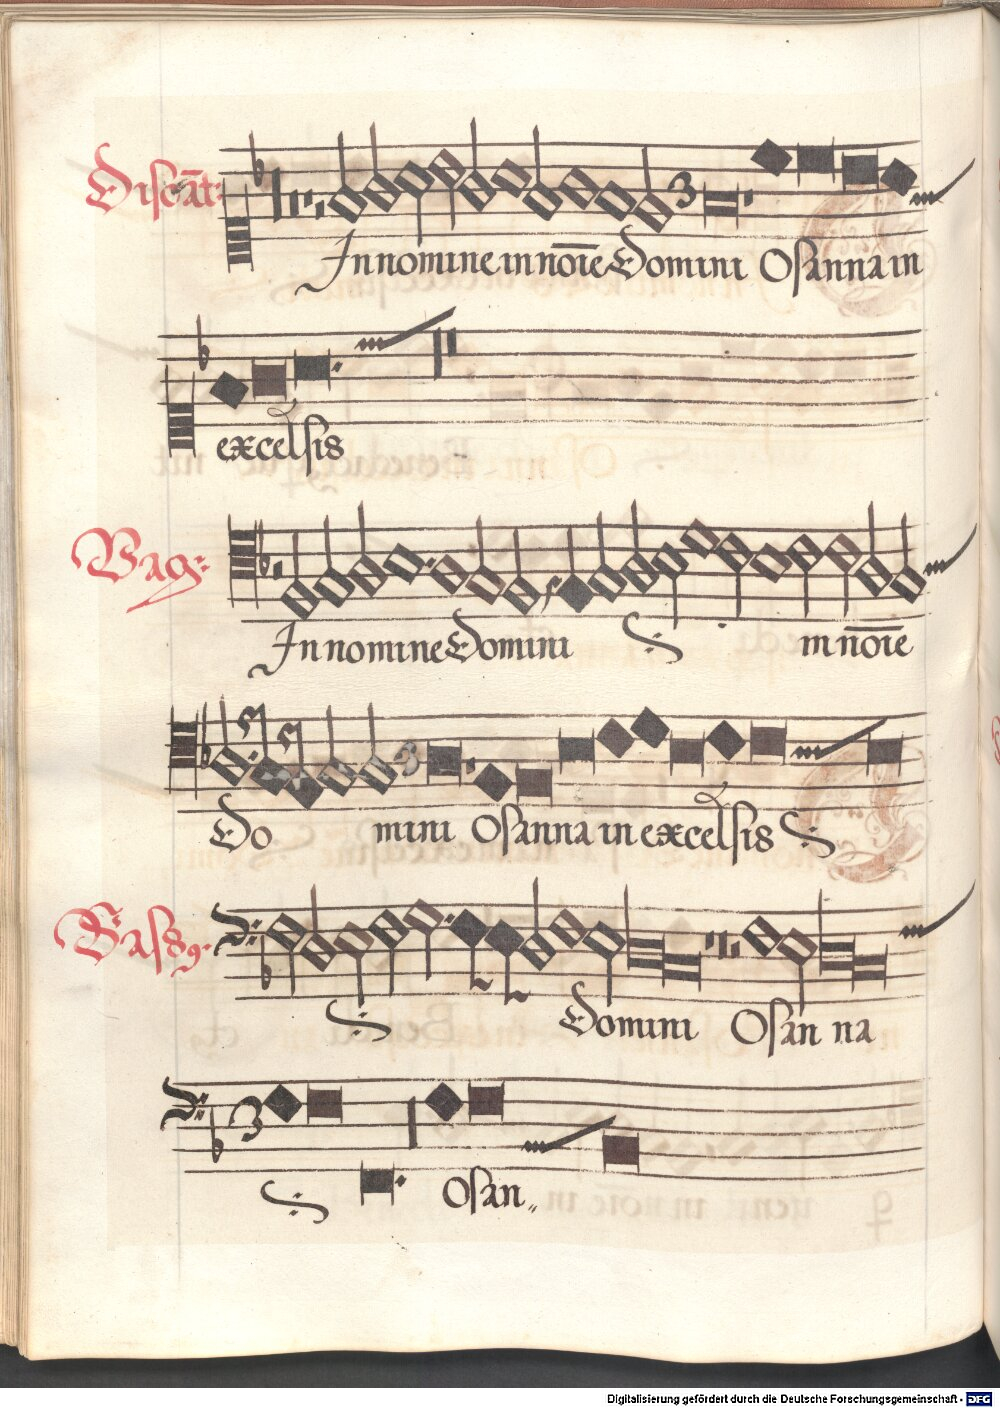 Discāt:
In nomine in nōīe Domini Osanna in
excelsis
Vag:
In nomine Domini in nōīe
Do mini Osanna in excelsis
Bass9.
Domini Osan na
Osan„
Digitalisierung gefördert durch die Deutsche Forschungsgemeinschaft - DFG